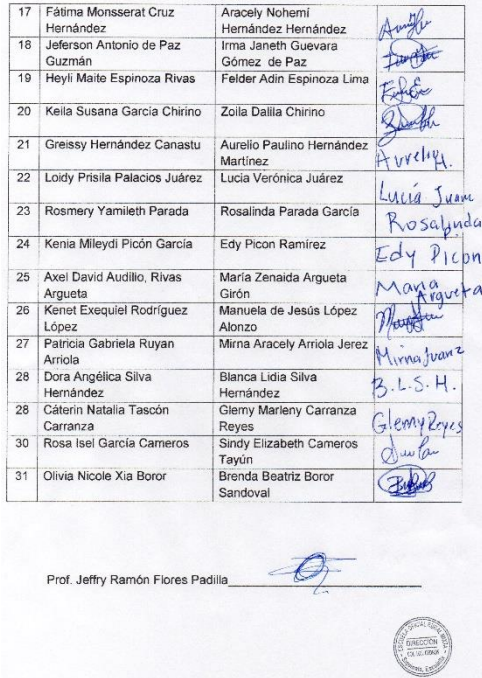 17 Fátima Monsserat Cruz Aracely Nohemí
Hernández Hernández Hernández
18 Jeferson Antonio de Paz Irma Janeth Guevara
Guzmán Gómez de Paz
19 Heyli Maite Espinoza Rivas Felder Adin Espinoza Lima
20 Keila Susana García Chirino Zoila Dalila Chirino
21 Greissy Hernández Canastu Aurelio Paulino Hernández
Martínez Aurelio H.
22 Loidy Prisila Palacios Juárez Lucia Verónica Juárez
Lucía
23 Rosmery Yamileth Parada Rosalinda Parada García Rosalinda
24 Kenia Mileydi Picón García Edy Picon Ramírez Edy Picon
25 Axel David Audilio, Rivas María Zenaida Argueta Maria
Argueta Girón Argueta
26 Kenet Exequiel Rodríguez Manuela de Jesús López
López Alonzo
27 Patricia Gabriela Ruyan Mirna Aracely Arriola Jerez
Arriola Mirna
28 Dora Angélica Silva Blanca Lidia Silva
Hernández Hernández B.L.S.H.
28 Cáterin Natalia Tascón Glemy Marleny Carranza
Carranza Reyes Glemy Reyes
30 Rosa Isel García Cameros Sindy Elizabeth Cameros
Tayún
31 Olivia Nicole Xia Boror Brenda Beatriz Boror
Sandoval
Prof. Jeffry Ramón Flores Padilla
ESCUELA OFICIAL RURAL MIXTA
DIRECCIÓN
Escuintla